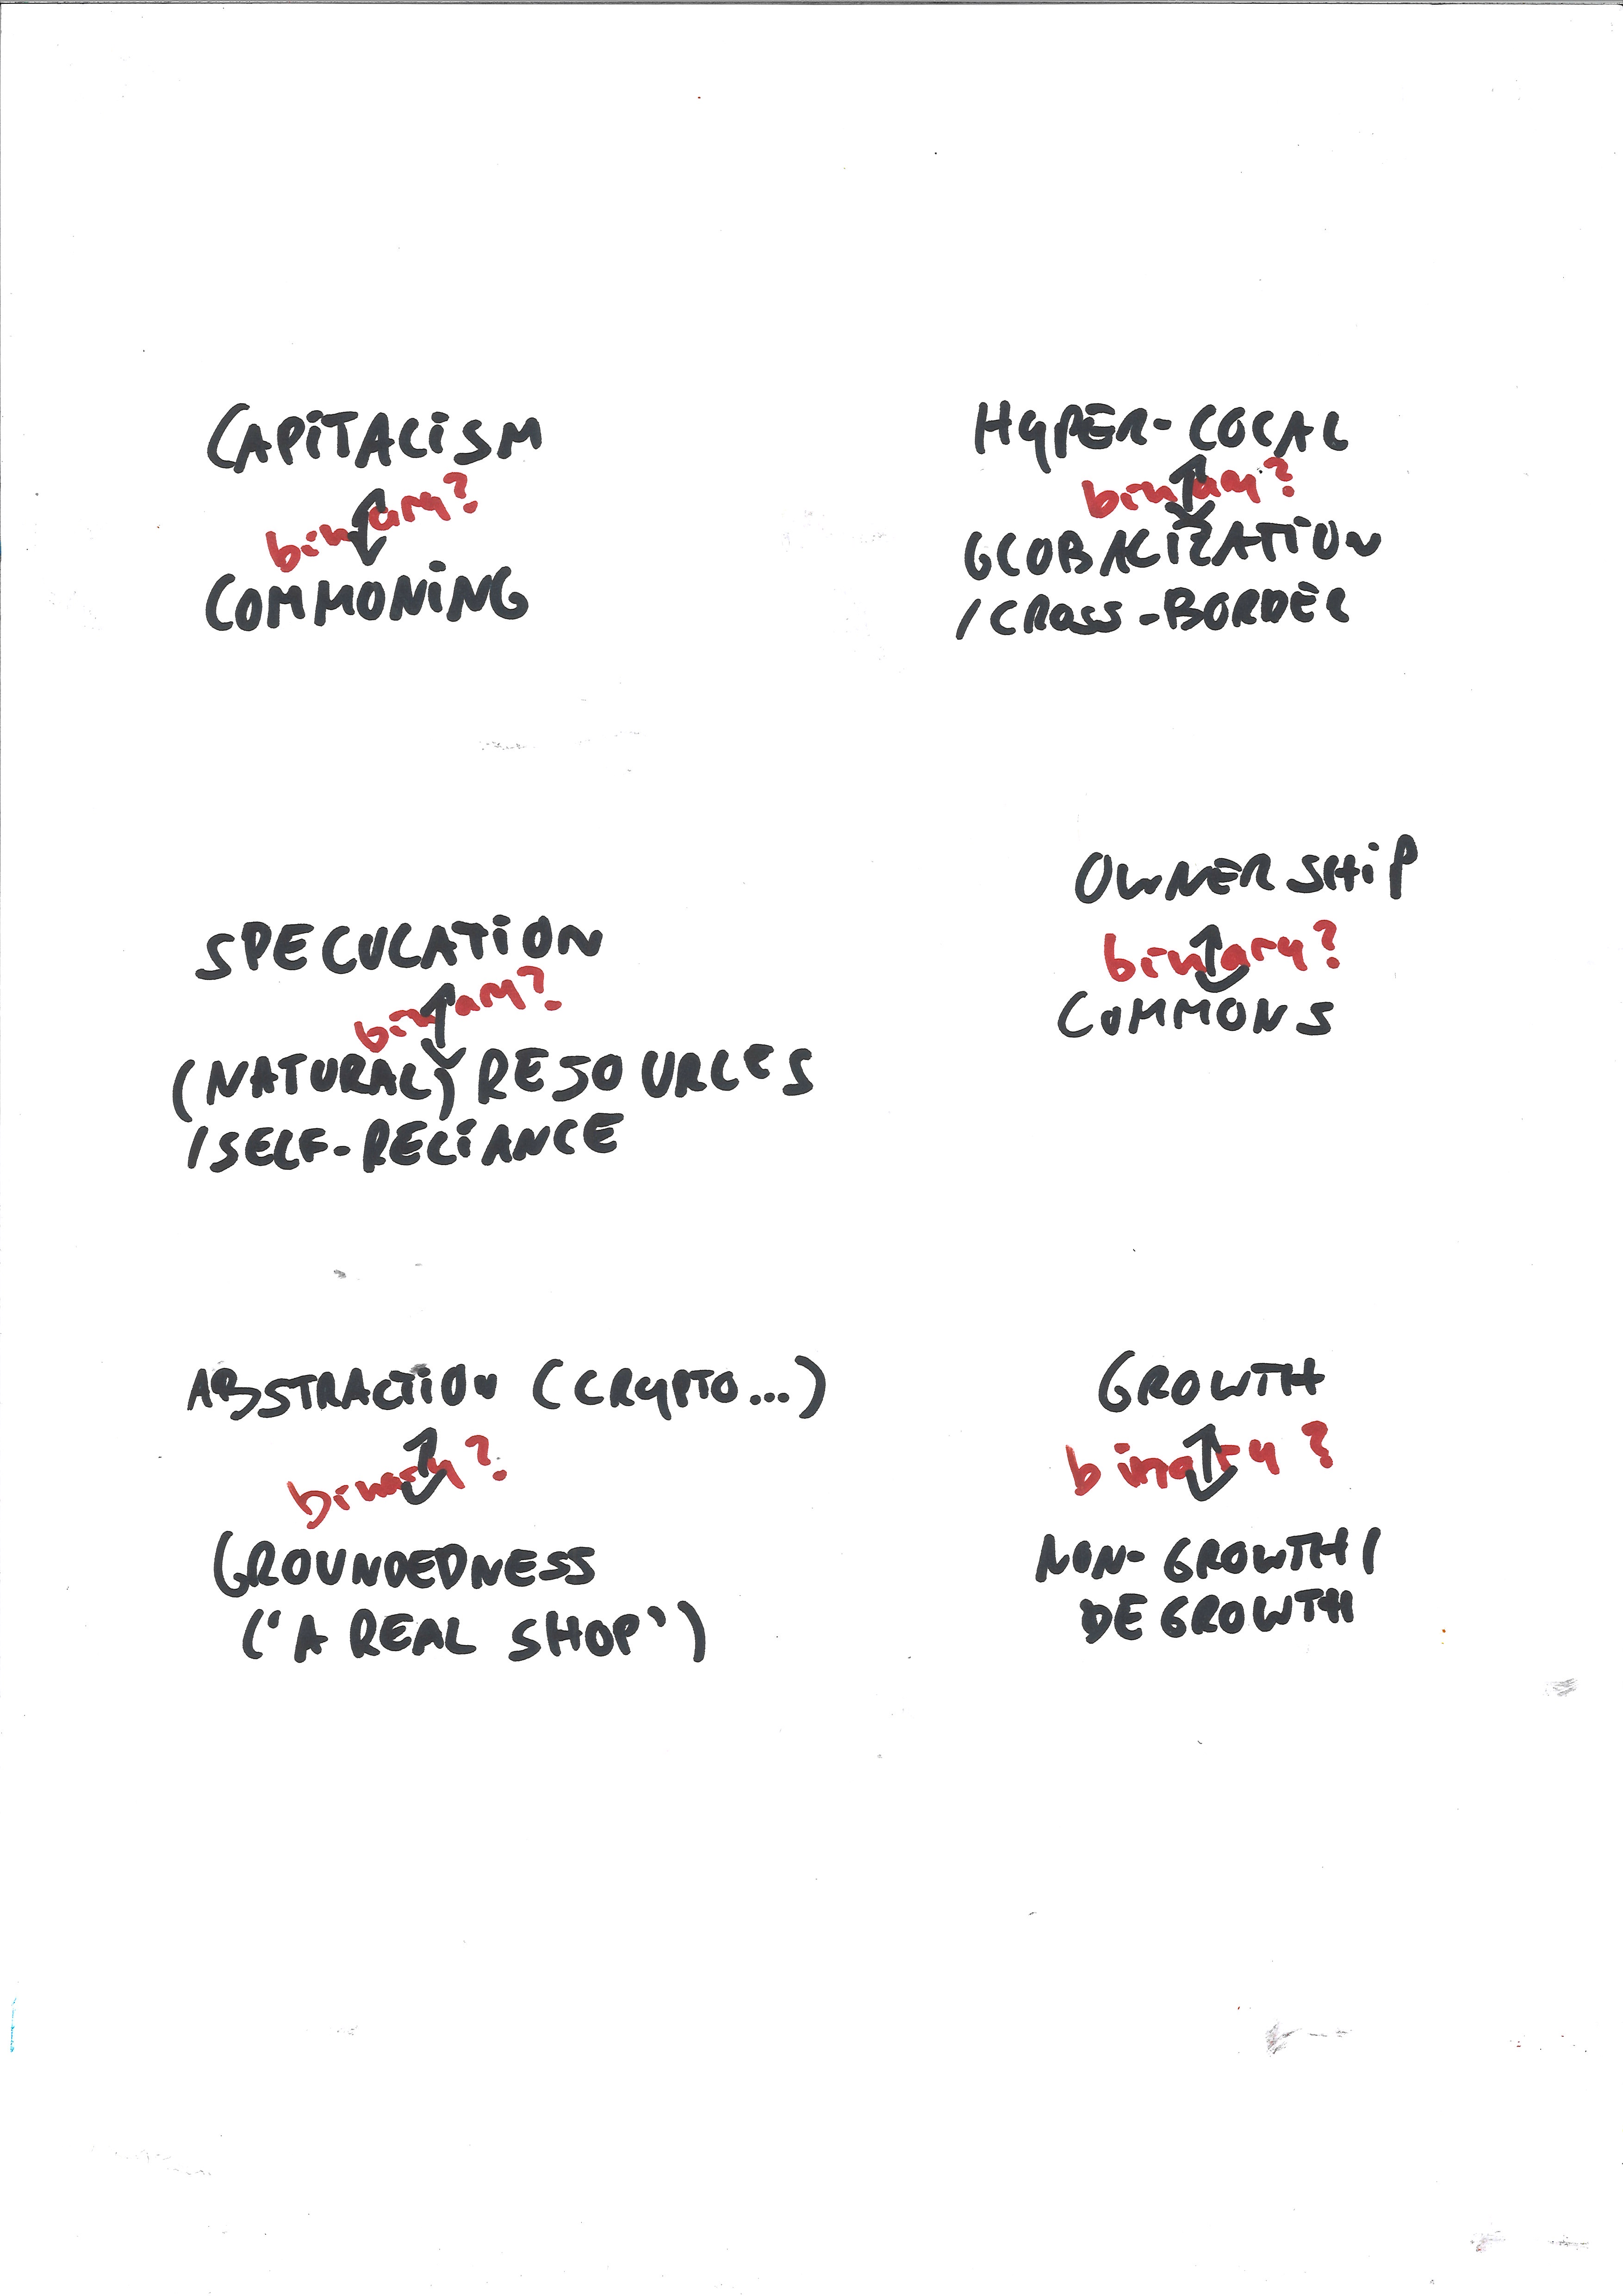 CAPITALISM
binary?
COMMONING
HYPER-LOCAL
binary?
GLOBALIZATION
/CROSS-BORDER
SPECULATION
binary?
(NATURAL) RESOURCES
/SELF-RELIANCE
OWNERSHIP
binary?
COMMONS
ABSTRACTION (CRYPTO...)
binary?
GROUNDEDNESS
('A REAL SHOP')
GROWTH
binary?
NON-GROWTH/
DEGROWTH